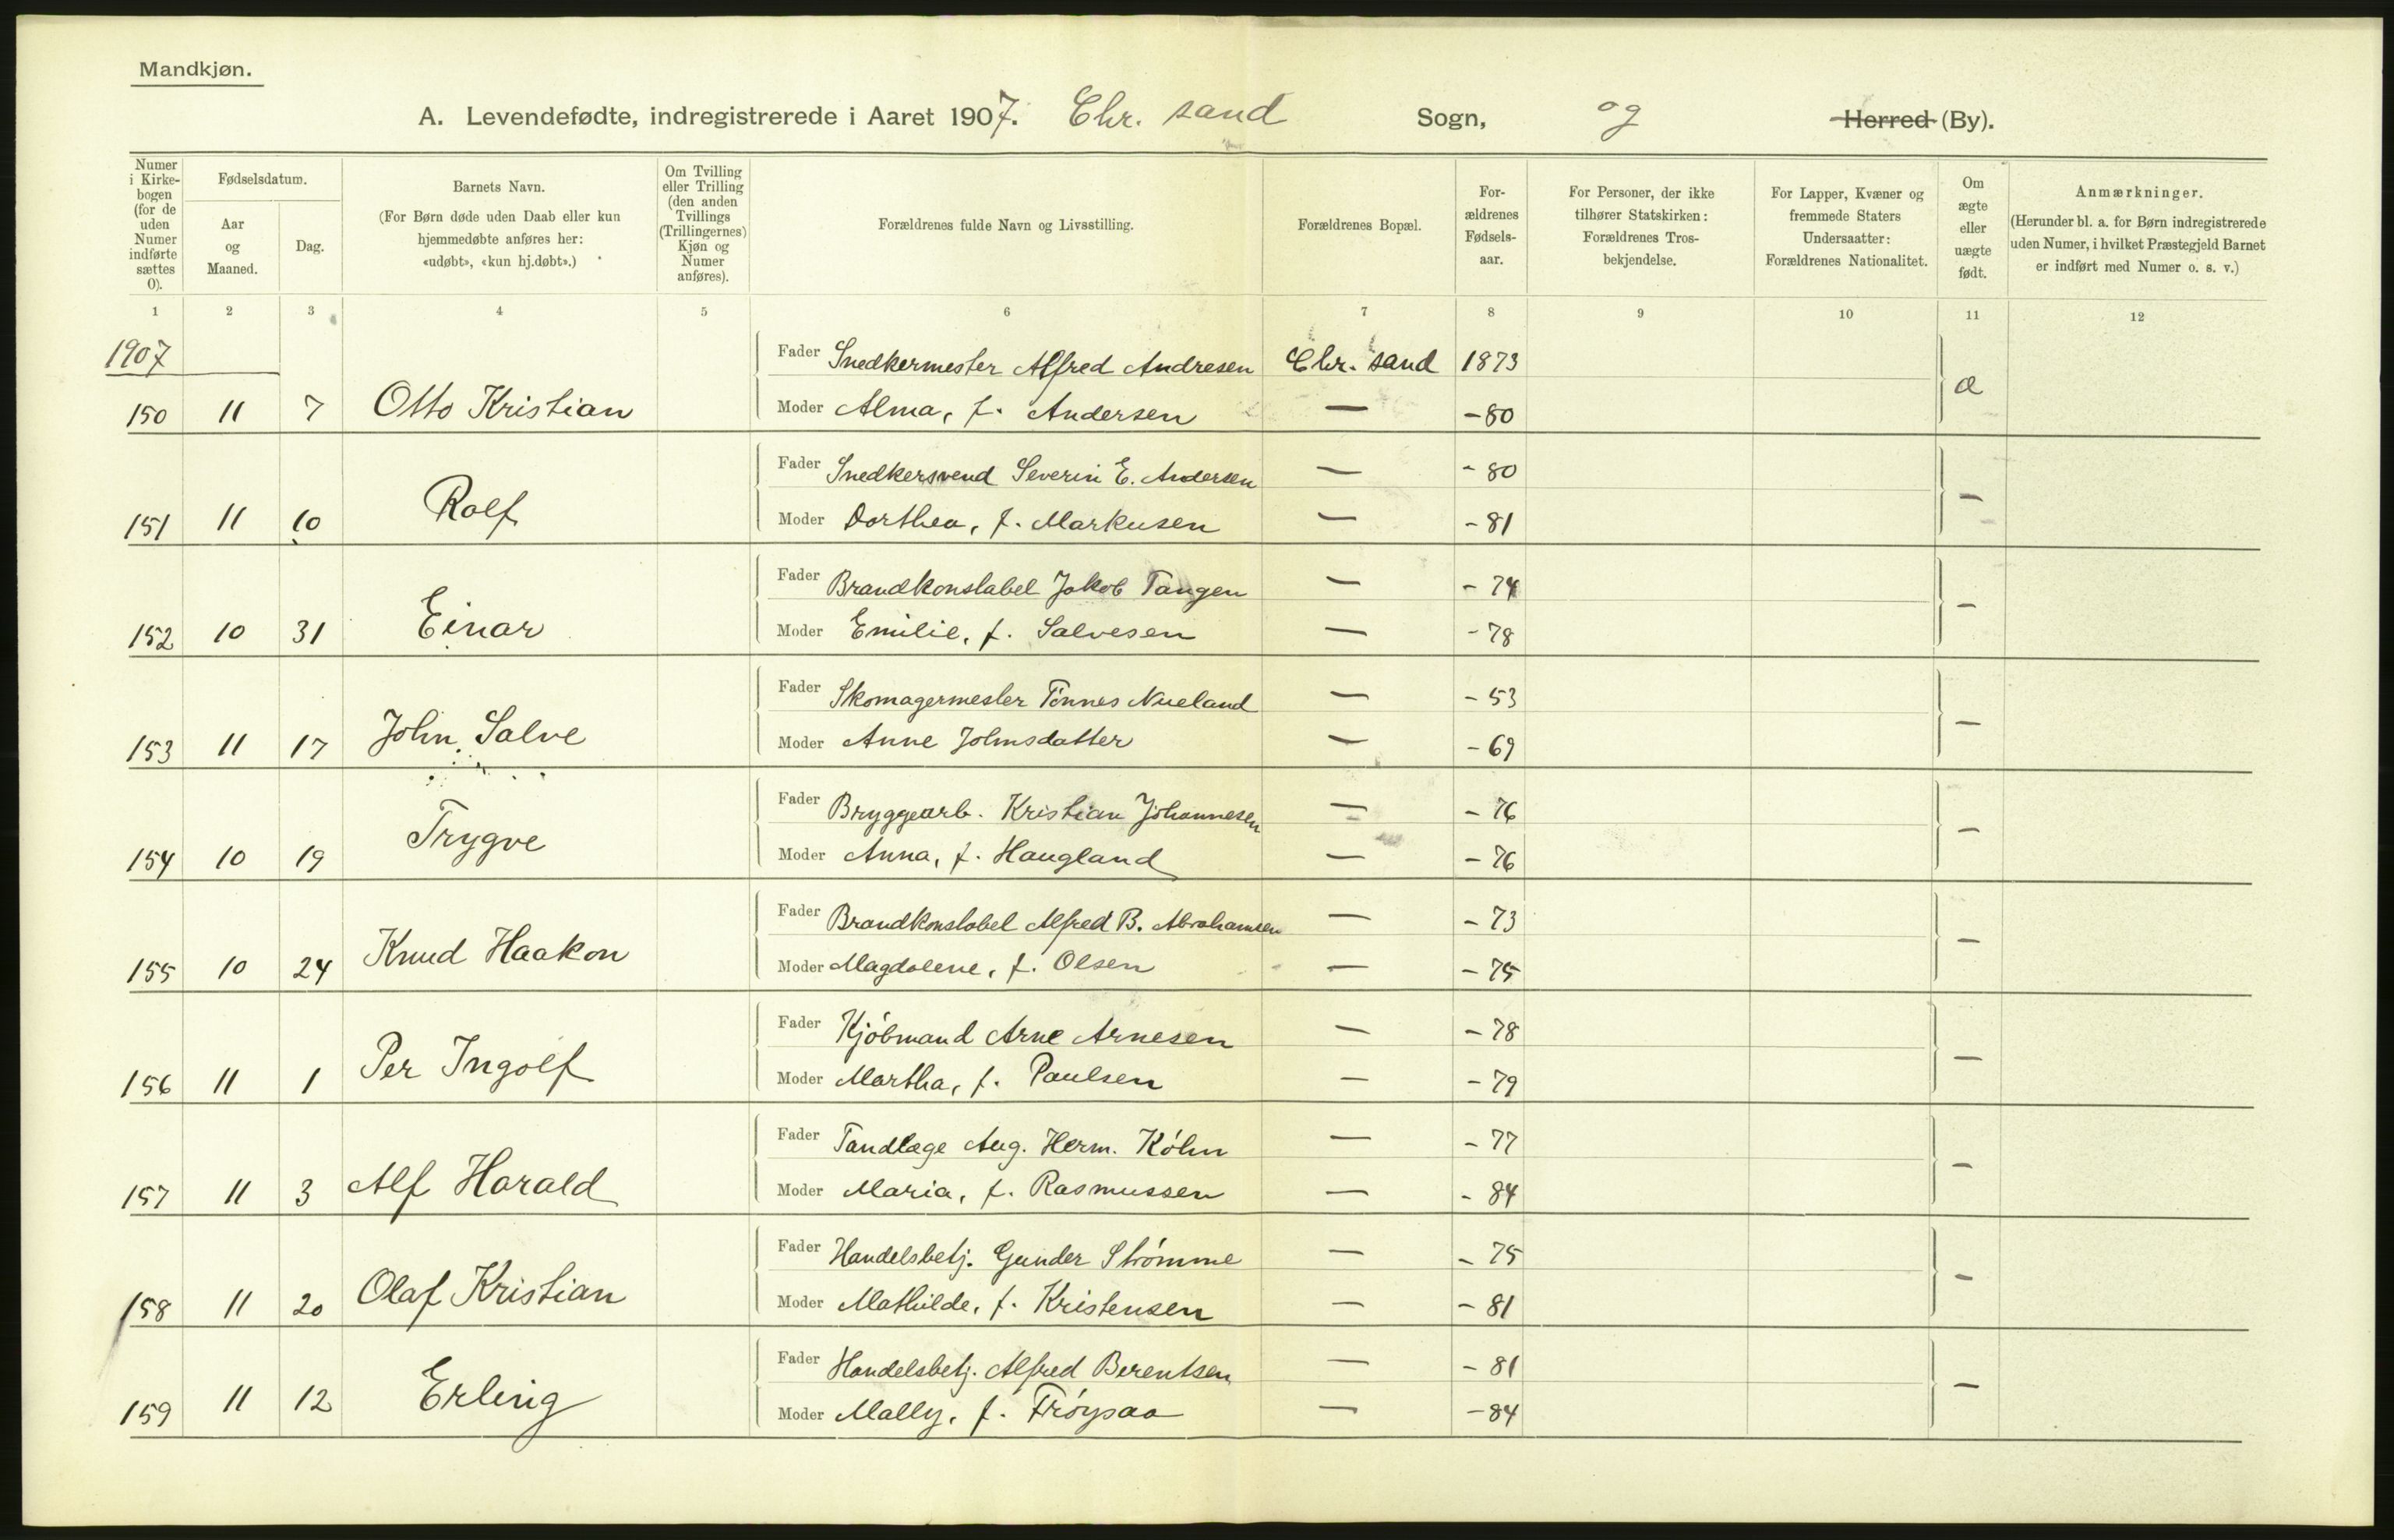 Mandkjøn.
A. Levendefødte, indregistrerede i Aaret 1907. Chr. sand Sogn, og Herred (By).
Numer i Kirkebogen (for de uden Numer indførte sættes 0).
Fødselsdatum.
Aar og Maaned.
Dag.
Barnets Navn.
(For Børn døde uden Daab eller kun hjemmedøbte anføres her: «udøbt», «kun hj.døbt».)
Om Tvilling eller Trilling (den anden Tvillings (Trillingernes) Kjøn og Numer anføres).
Forældrenes fulde Navn og Livsstilling.
Forældrenes Bopæl.
Forældrenes Fødselsaar.
For Personer, der ikke tilhører Statskirken: Forældrenes Trosbekjendelse.
For Lapper, Kvæner og fremmede Staters Undersaatter: Forældrenes Nationalitet.
Om ægte eller uægte født.
Anmærkninger.
(Herunder bl. a. for Børn indregistrerede uden Numer, i hvilket Præstegjeld Barnet er indført med Numer o. s. v.)
1 2 3 4 5 6 7 8 9 10 11 12
1907
Fader Snedkermester Alfred Andresen Chr. sand 1873
150 11 7 Otto Kristian Moder Alma, f. Andersen — -80 æ
Fader Snedkersvend Severin E. Andersen — -80
151 11 10 Rolf Moder Dorthea, f. Markusen — -81 —
Fader Brandkonstabel Jakob Tangen — -74
152 10 31 Einar Moder Emilie, f. Salvesen — -78 —
Fader Skomagermester Tönnes Nueland — -53
153 11 17 John Salve Moder Anne Johnsdatter — -69 —
Fader Bryggearb. Kristian Johannesen — -76
154 10 19 Trygve Moder Anna, f. Haugland — -76 —
Fader Brandkonstabel Alfred B. Abrahamsen — -73
155 10 24 Knud Haakon Moder Magdalene, f. Olsen — -75 —
Fader Kjöbmand Arne Arnesen — -78
156 11 1 Per Ingolf Moder Martha, f. Paulsen — -79 —
Fader Tandlæge Aug. Herm. Köhn — -77
157 11 3 Alf Harald Moder Maria, f. Rasmussen — -84 —
Fader Handelsbetj. Gunder Strömme — -75
158 11 20 Olaf Kristian Moder Mathilde, f. Kristensen — -81 —
Fader Handelsbetj. Alfred Berentsen — -81
159 11 12 Erling Moder Mally, f. Fröysaa — -84 —